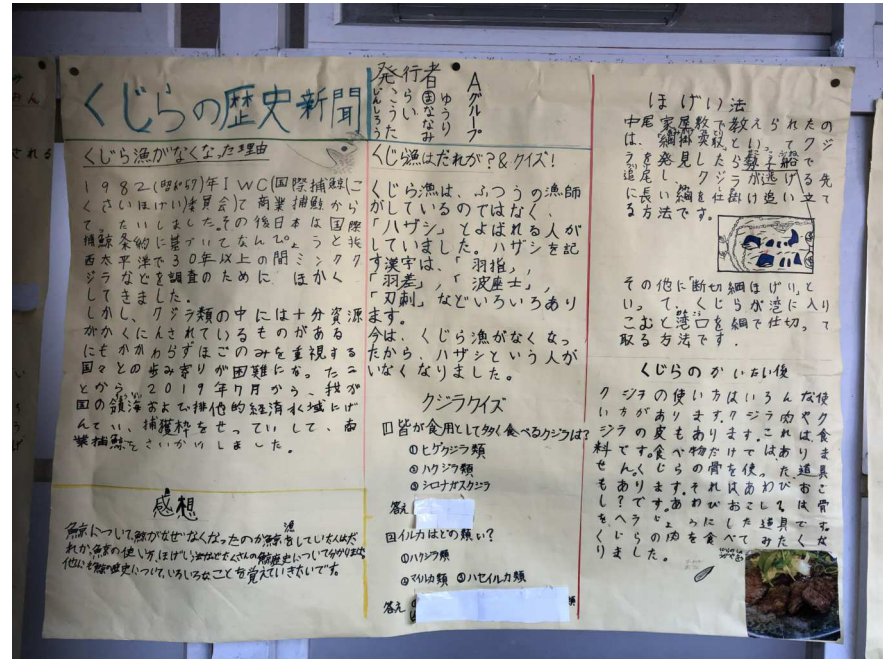 くじらの歴史新聞
発行者
Aグループ
ゆうり
くじら漁がなくなった理由
1982(昭和57)年IWC(国際捕鯨(こ
くさいほげい)委員会)で商業捕鯨から
てったいしました。その後日本は国際
捕鯨条約に基づいてなんぴょうと北
西太平洋で30年以上の間ミンクク
ジラなどを調査のために ほかく
してきました。
しかし、クジラ類の中には十分資源
がかくにんされているものがある
にもかかわらずほごのみを重視する
国々との歩み寄りが困難になったこ
とから、2019年7月から、我が
国の領海および排他的経済水域にげ
んてい、捕獲枠をせっていして、商
業捕鯨をさいかいしました。
感想
鯨について、鯨がなぜなくなったのか鯨漁をしていた人はだ
れか、鯨の使い方、ほげい法などたくさんの鯨歴史について分かりました。
他にも鯨の歴史について、いろいろなことを覚えていきたいです。
くじら漁はだれが?&クイズ!
くじら漁は、ふつうの漁師
がしているのではなく、
「ハザシ」とよばれる人が
していました。ハザシを記
す漢字は、「羽指」、
「羽差」,「波座士」,
「刃刺」などいろいろあり
ます。
今は、くじら漁がなくなっ
たから、ハザシという人が
いなくなりました。
クジラクイズ
1皆が食用として多く食べるクジラは?
①ヒゲクジラ類
②ハクジラ類
③シロナガスクジラ
答え
2イルカはどの類い?
①ハクジラ類
②マイルカ類 ③ハセイルカ類
答え
ほげい法
中尾家屋敷で教えられたの
は、網掛突取といってクジ
ラを発見したら勢子船で
追尾し クジラが逃げる先
に長い網を仕掛け追い立て
る方法です。
その他に「断切網ほげい」と
いって、くじらが湾に入り
こむと湾口を網で仕切って
取る方法です.
くじらのかいたい後
クジラの使い方はいろんな使
い方があります。クジラ肉やク
ジラの皮もあります。これは、食
料です。食べ物だけではありま
せん。くじらの骨を使った道具
もあります。それはあわびおこ
し?です。あわびおこしは骨
をヘラじょうにした道具です。
くじらの肉を食べてみたくな
りました。